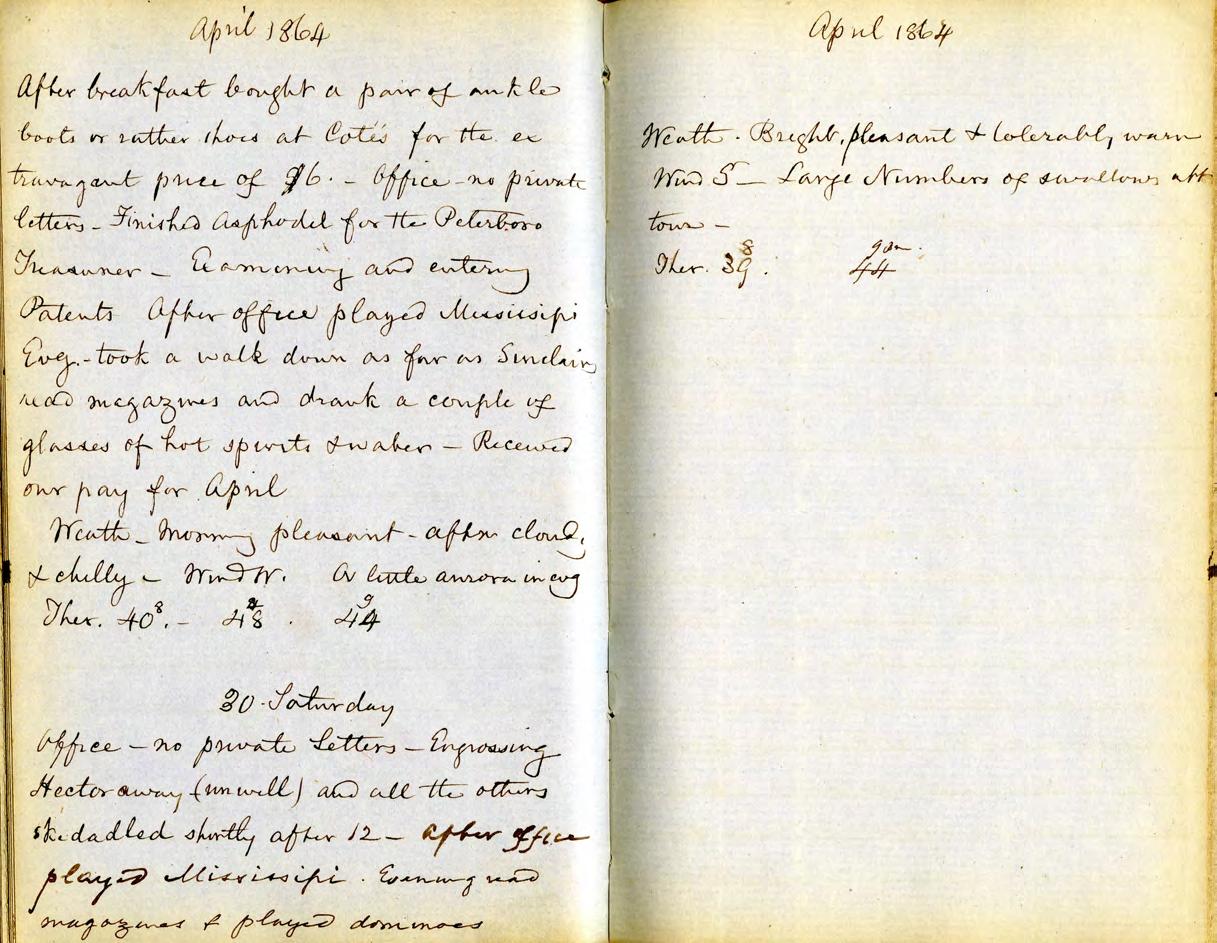 April 1864
After breakfast bought a pair of ankle
boots or rather shoes at Coté's for the ex
travagant price of $6. - Office - no private
letters - Finished Asphodel for the Peterboro
Examining and entering
Patents After office played Mississipi
Evg. - took a walk down as far as Sinclairs
read magazines and drank a couple of
glasses of hot spirits & water - Received
our pay for April
Weath - Morning pleasant - aftn cloudy
& chilly - Wind W. A little aurora in evg
8 9
Ther. 40. - 48 . 44
30 Saturday
Office - no private Letters - Engrossing
Hector away (unwell) and all the others
skedadled shortly after 12 - After office
played Mississipi . Evening read
magazines & played dominoes
April 1864
Weath . Bright, pleasant & tolerably warm
Wind S - Large Numbers of swallows abt
town -
8 9 am .
Ther. 39 . 44